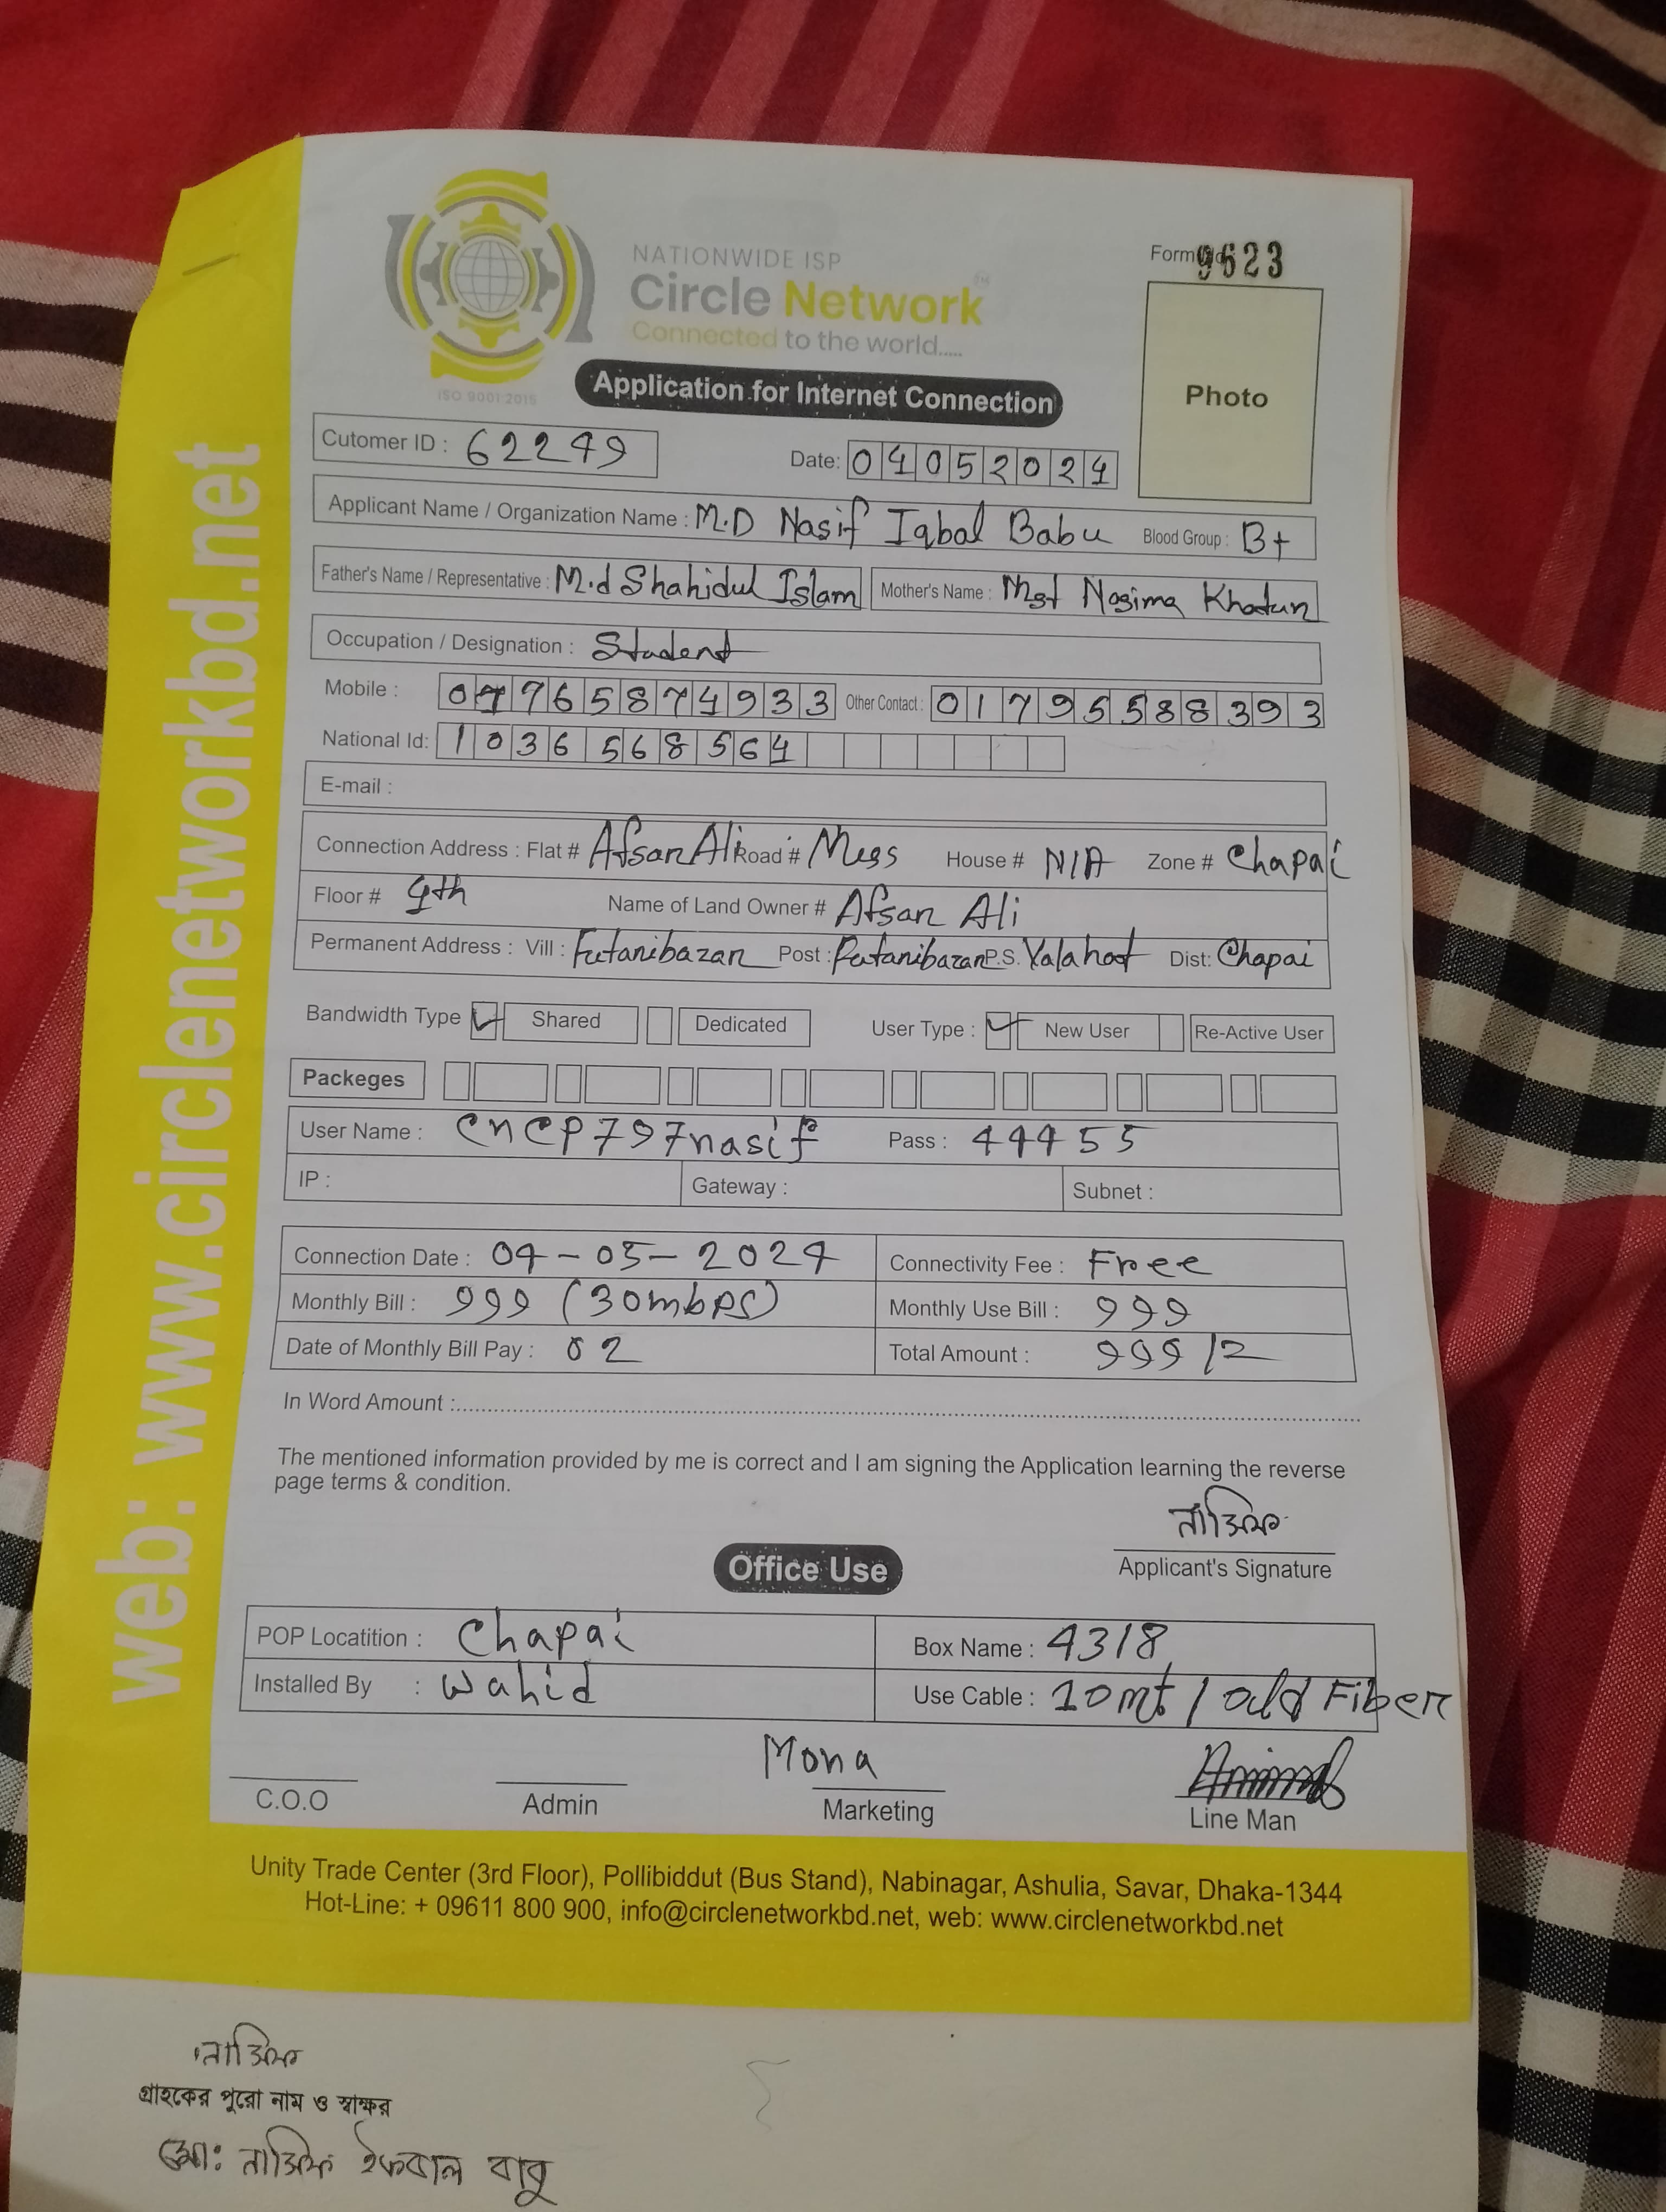 NATIONWIDE ISP
Circle Network
Connected to the world.....
ISO 9001:2015
Form 9623
Photo
Application for Internet Connection
Cutomer ID : 62249
Date: 04052024
Applicant Name / Organization Name : M.D Nasif Iqbal Babu Blood Group : B+
Father's Name / Representative : M.d Shahidul Islam Mother's Name : Mst Nasima Khatun
Occupation / Designation : Student
Mobile : 01765874933 Other Contact : 01795588393
National Id: 1036568564
E-mail :
Connection Address : Flat # Afsan Ali Road # Mess House # N/A Zone # Chapai
Floor # 4th Name of Land Owner # Afsan Ali
Permanent Address : Vill : Futanibazar Post : Futanibazar P.S. Valahat Dist: Chapai
Bandwidth Type Shared Dedicated User Type : New User Re-Active User
Packeges
User Name : cncp797nasif Pass : 44455
IP : Gateway : Subnet :
Connection Date : 04-05-2024 Connectivity Fee : Free
Monthly Bill : 999 (30mbps) Monthly Use Bill : 999
Date of Monthly Bill Pay : 02 Total Amount : 999/2
In Word Amount :
The mentioned information provided by me is correct and I am signing the Application learning the reverse
page terms & condition.
নাসিফ
Applicant's Signature
Office Use
POP Locatition : Chapai Box Name : 4318
Installed By : Wahid Use Cable : 10mt / old Fiber
Mona
C.O.O Admin Marketing Line Man
Unity Trade Center (3rd Floor), Pollibiddut (Bus Stand), Nabinagar, Ashulia, Savar, Dhaka-1344
Hot-Line: + 09611 800 900, info@circlenetworkbd.net, web: www.circlenetworkbd.net
web: www.circlenetworkbd.net
নাসিফ
গ্রাহকের পুরো নাম ও স্বাক্ষর
মো: নাসিফ ইকবাল বাবু